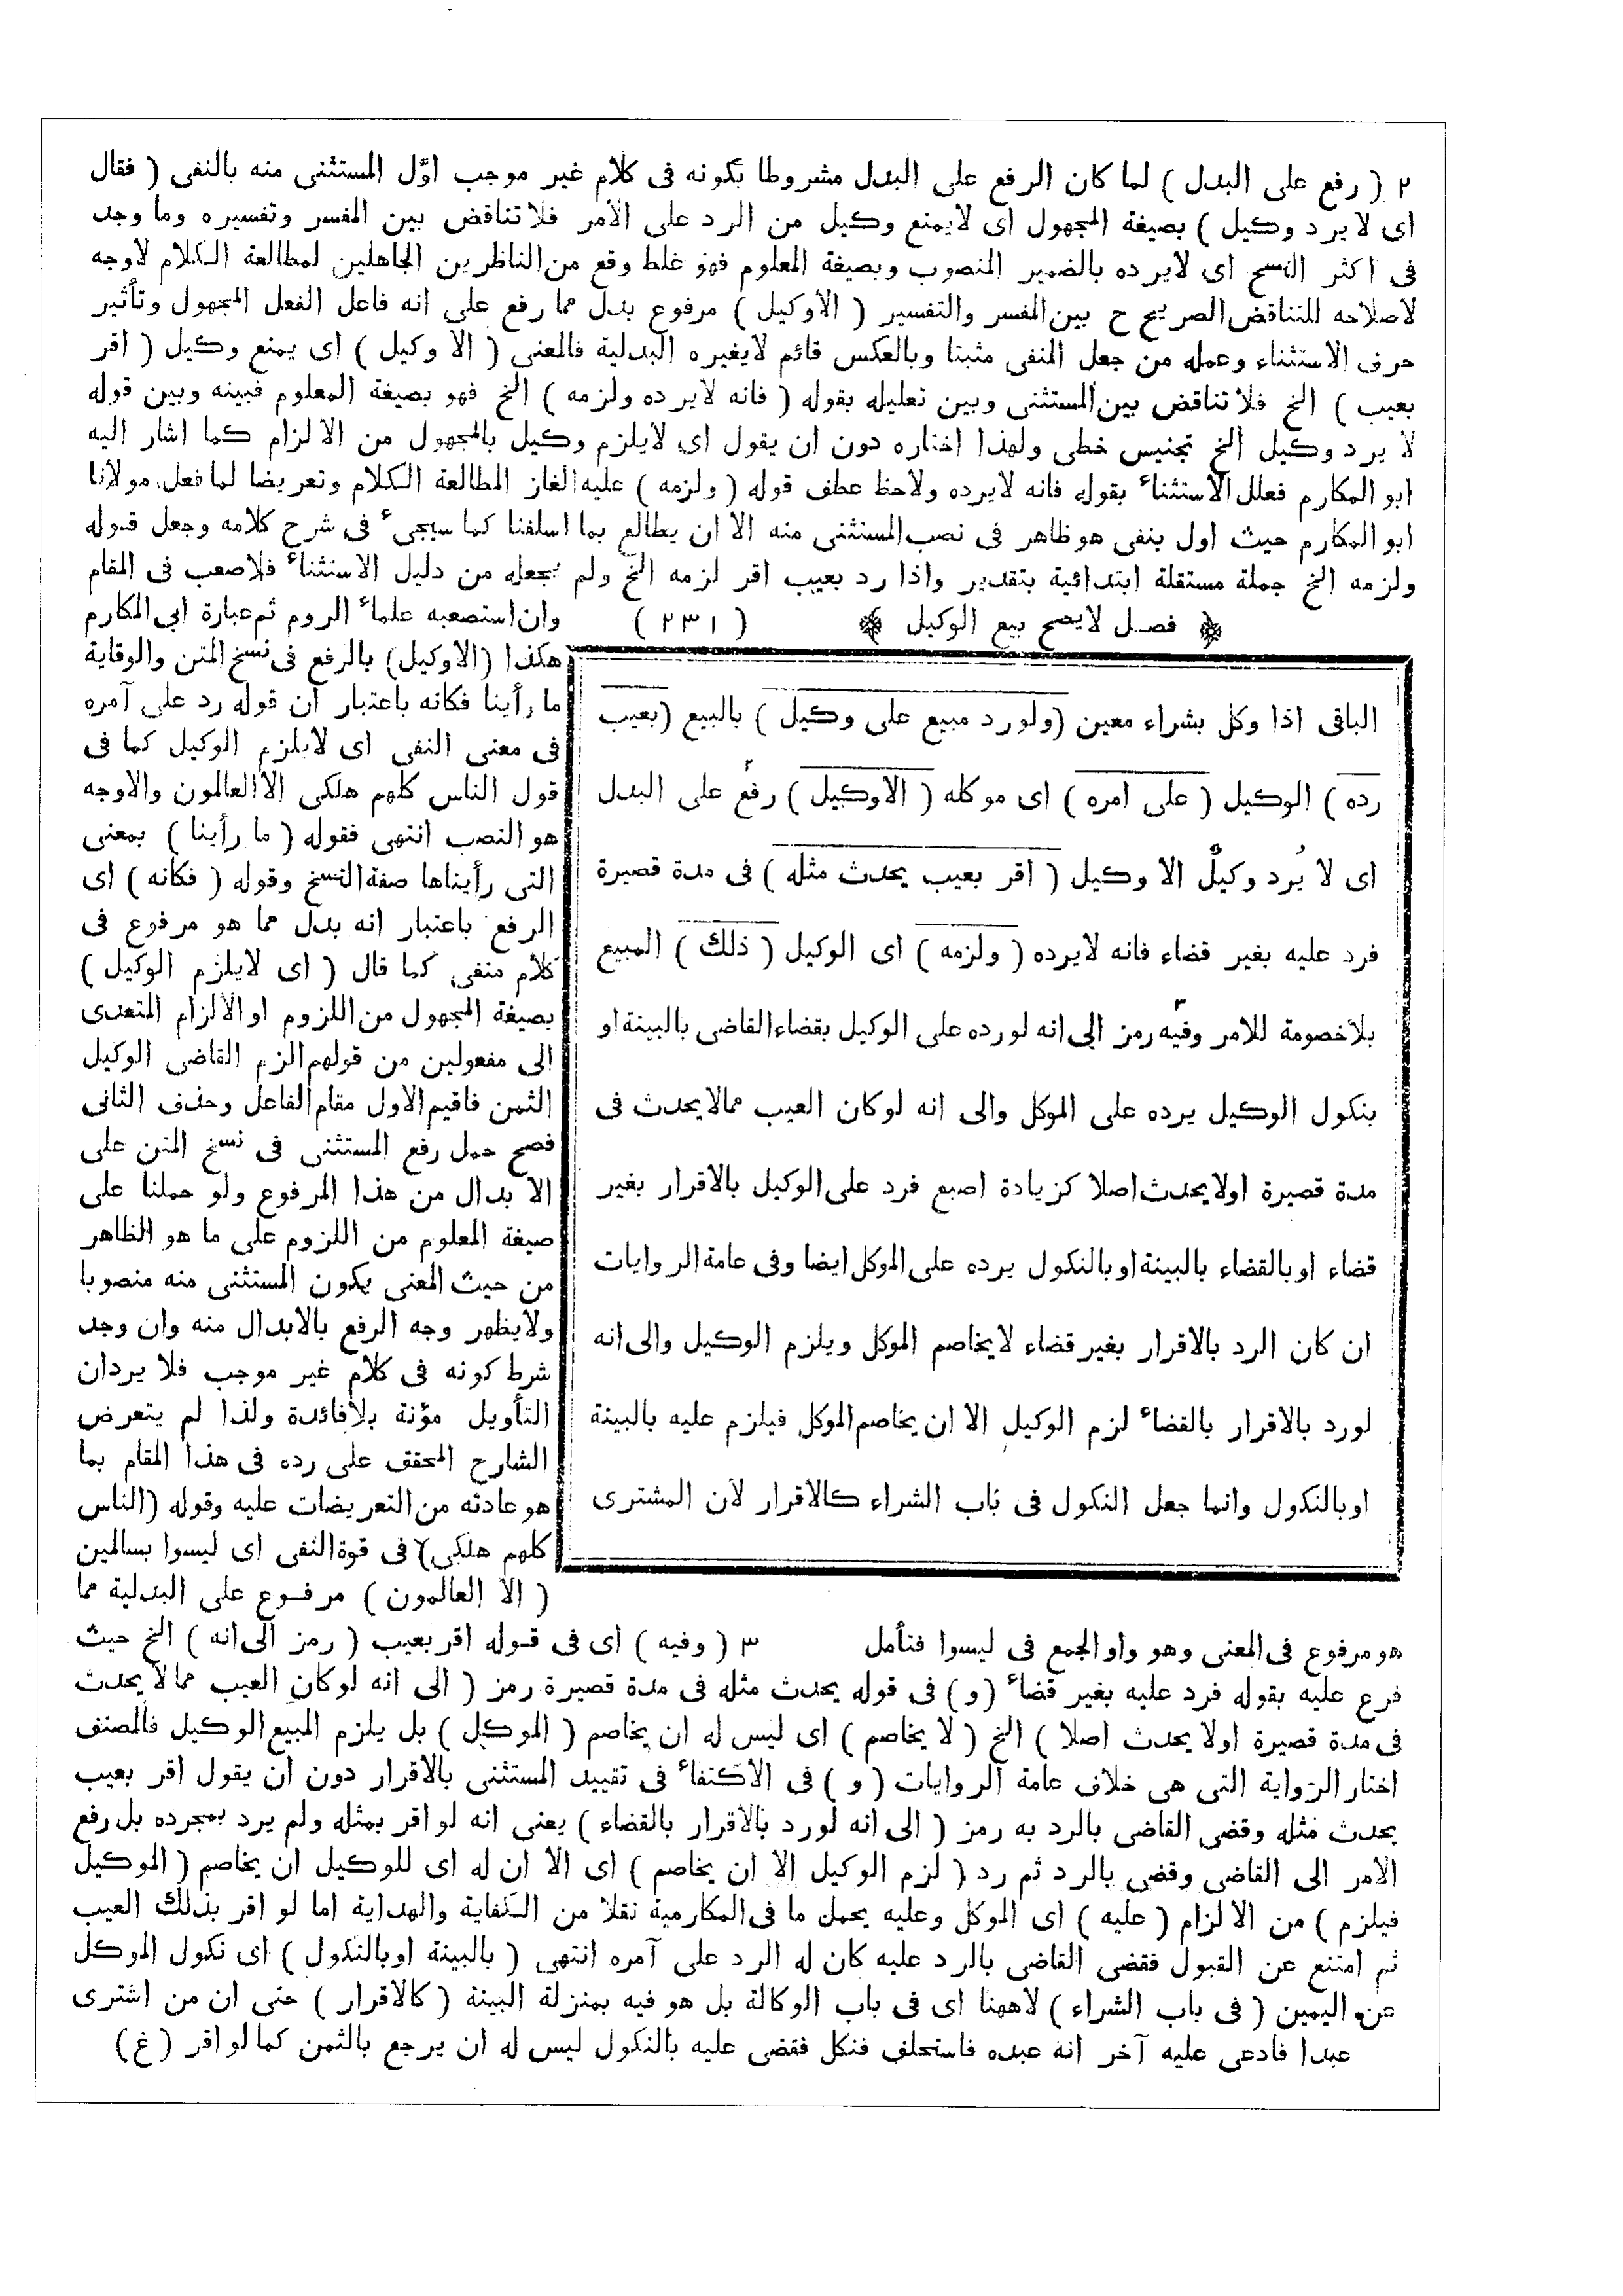 ٢ ( رفع على البدل ) لما كان الرفع على البدل مشروطا بكونه فى كلام غير موجب اوّل المستثنى منه بالنفى ( فقال
اى لا يرد وكيل ) بصيغة المجهول اى لايمنع وكيل من الرد على الآمر فلا تناقض بين المفسر وتفسيره وما وجد
فى اكثر النسخ اى لايرده بالضمير المنصوب وبصيغة المعلوم فهو غلط وقع من الناظرين الجاهلين لمطالعة الكلام لاوجه
لاصلاحه للتناقض الصريح ح بين المفسر والتفسير ( الاوكيل ) مرفوع بدل مما رفع على انه فاعل الفعل المجهول وتأثير
حرف الاستثناء وعمله من جعل المنفى مثبتا وبالعكس قائم لايغيره البدلية فالمعنى ( الا وكيل ) اى يمنع وكيل ( اقر
بعيب ) الخ فلا تناقض بين المستثنى وبين تعليله بقوله ( فانه لايرده ولزمه ) الخ فهو بصيغة المعلوم فبينه وبين قوله
لا يرد وكيل الخ تجنيس خطى ولهذا اختاره دون ان يقول اى لايلزم وكيل بالمجهول من الالزام كما اشار اليه
ابو المكارم فعلل الاستثناء بقوله فانه لايرده ولاحظ عطف قوله ( ولزمه ) عليه الغاز المطالعة الكلام وتعريضا لما فعل مولانا
ابو المكارم حيث اول بنفى هو ظاهر فى نصب المستثنى منه الا ان يطالع بما اسلفنا كما سيجىء فى شرح كلامه وجعل قوله
ولزمه الخ جملة مستقلة ابتدائية بتقدير واذا رد بعيب اقر لزمه الخ ولم يجعله من دليل الاستثناء فلاصعب فى المقام
﴿ فصل لايصح بيع الوكيل ﴾ ( ٢٣١ )
الباقى اذا وكل بشراء معين (ولورد مبيع على وكيل ) بالبيع (بعيب
رده ) الوكيل ( على امره ) اى موكله ( الاوكيل ) رفع٢ على البدل
اى لا يُرد وكيلٌ الا وكيل ( اقر بعيب يحدث مثله ) فى مدة قصيرة
فرد عليه بغير قضاء فانه لايرده ( ولزمه ) اى الوكيل ( ذلك ) المبيع
بلاخصومة للامر وفيه٣ رمز الى انه لورده على الوكيل بقضاء القاضى بالبينة او
بنكول الوكيل يرده على الموكل والى انه لوكان العيب ممالايحدث فى
مدة قصيرة اولايحدث اصلا كزيادة اصبع فرد على الوكيل بالاقرار بغير
قضاء اوبالقضاء بالبينة اوبالنكول يرده على الموكل ايضا وفى عامة الروايات
ان كان الرد بالاقرار بغير قضاء لايخاصم الموكل ويلزم الوكيل والى انه
لورد بالاقرار بالقضاء لزم الوكيل الا ان يخاصم الموكل فيلزم عليه بالبينة
اوبالنكول وانما جعل النكول فى باب الشراء كالاقرار لان المشترى
وان استصعبه علماء الروم ثم عبارة ابى المكارم
هكذا (الاوكيل) بالرفع فى نسخ المتن والوقاية
ما رأينا فكانه باعتبار ان قوله رد على آمره
فى معنى النفى اى لايلزم الوكيل كما فى
قول الناس كلهم هلكى الا العالمون والاوجه
هو النصب انتهى فقوله ( ما رأينا ) بمعنى
التى رأيناها صفة النسخ وقوله ( فكانه ) اى
الرفع باعتبار انه بدل مما هو مرفوع فى
كلام منفى كما قال ( اى لايلزم الوكيل )
بصيغة المجهول من اللزوم او الالزام المتعدى
الى مفعولين من قولهم الزم القاضى الوكيل
الثمن فاقيم الاول مقام الفاعل وحذف الثانى
فصح حمل رفع المستثنى فى نسخ المتن على
الا بدال من هذا المرفوع ولو حملنا على
صيغة المعلوم من اللزوم على ما هو الظاهر
من حيث المعنى يكون المستثنى منه منصوبا
ولايظهر وجه الرفع بالابدال منه وان وجد
شرط كونه فى كلام غير موجب فلا يردان
التأويل مؤنة بلافائدة ولذا لم يتعرض
الشارح المحقق على رده فى هذا المقام بما
هو عادته من التعريضات عليه وقوله (الناس
كلهم هلكى) فى قوة النفى اى ليسوا بسالمين
( الا العالمون ) مرفوع على البدلية مما
هو مرفوع فى المعنى وهو واو الجمع فى ليسوا فتأمل ٣ ( وفيه ) اى فى قوله اقر بعيب ( رمز الى انه ) الخ حيث
فرع عليه بقوله فرد عليه بغير قضاء (و) فى قوله يحدث مثله فى مدة قصيرة رمز ( الى انه لوكان العيب ممالايحدث
فى مدة قصيرة اولايحدث اصلا ) الخ ( لا يخاصم ) اى ليس له ان يخاصم ( الموكل ) بل يلزم المبيع الوكيل فالمصنف
اختار الرواية التى هى خلاف عامة الروايات ( و ) فى الاكتفاء فى تقييد المستثنى بالاقرار دون ان يقول اقر بعيب
يحدث مثله وقضى القاضى بالرد به رمز ( الى انه لورد بالاقرار بالقضاء ) يعنى انه لو اقر بمثله ولم يرد بمجرده بل رفع
الامر الى القاضى وقضى بالرد ثم رد ( لزم الوكيل الا ان يخاصم ) اى الا ان له اى للوكيل ان يخاصم ( الموكيل
فيلزم ) من الالزام ( عليه ) اى الموكل وعليه يحمل ما فى المكارمية نقلا من الكفاية والهداية اما لو اقر بذلك العيب
ثم امتنع عن القبول فقضى القاضى بالرد عليه كان له الرد على آمره انتهى ( بالبينة اوبالنكول ) اى نكول الموكل
عن اليمين ( فى باب الشراء ) لاههنا اى فى باب الوكالة بل هو فيه بمنزلة البينة ( كالاقرار ) حتى ان من اشترى
عبدا فادعى عليه آخر انه عبده فاستحلف فنكل فقضى عليه بالنكول ليس له ان يرجع بالثمن كما لو اقر ( غ )